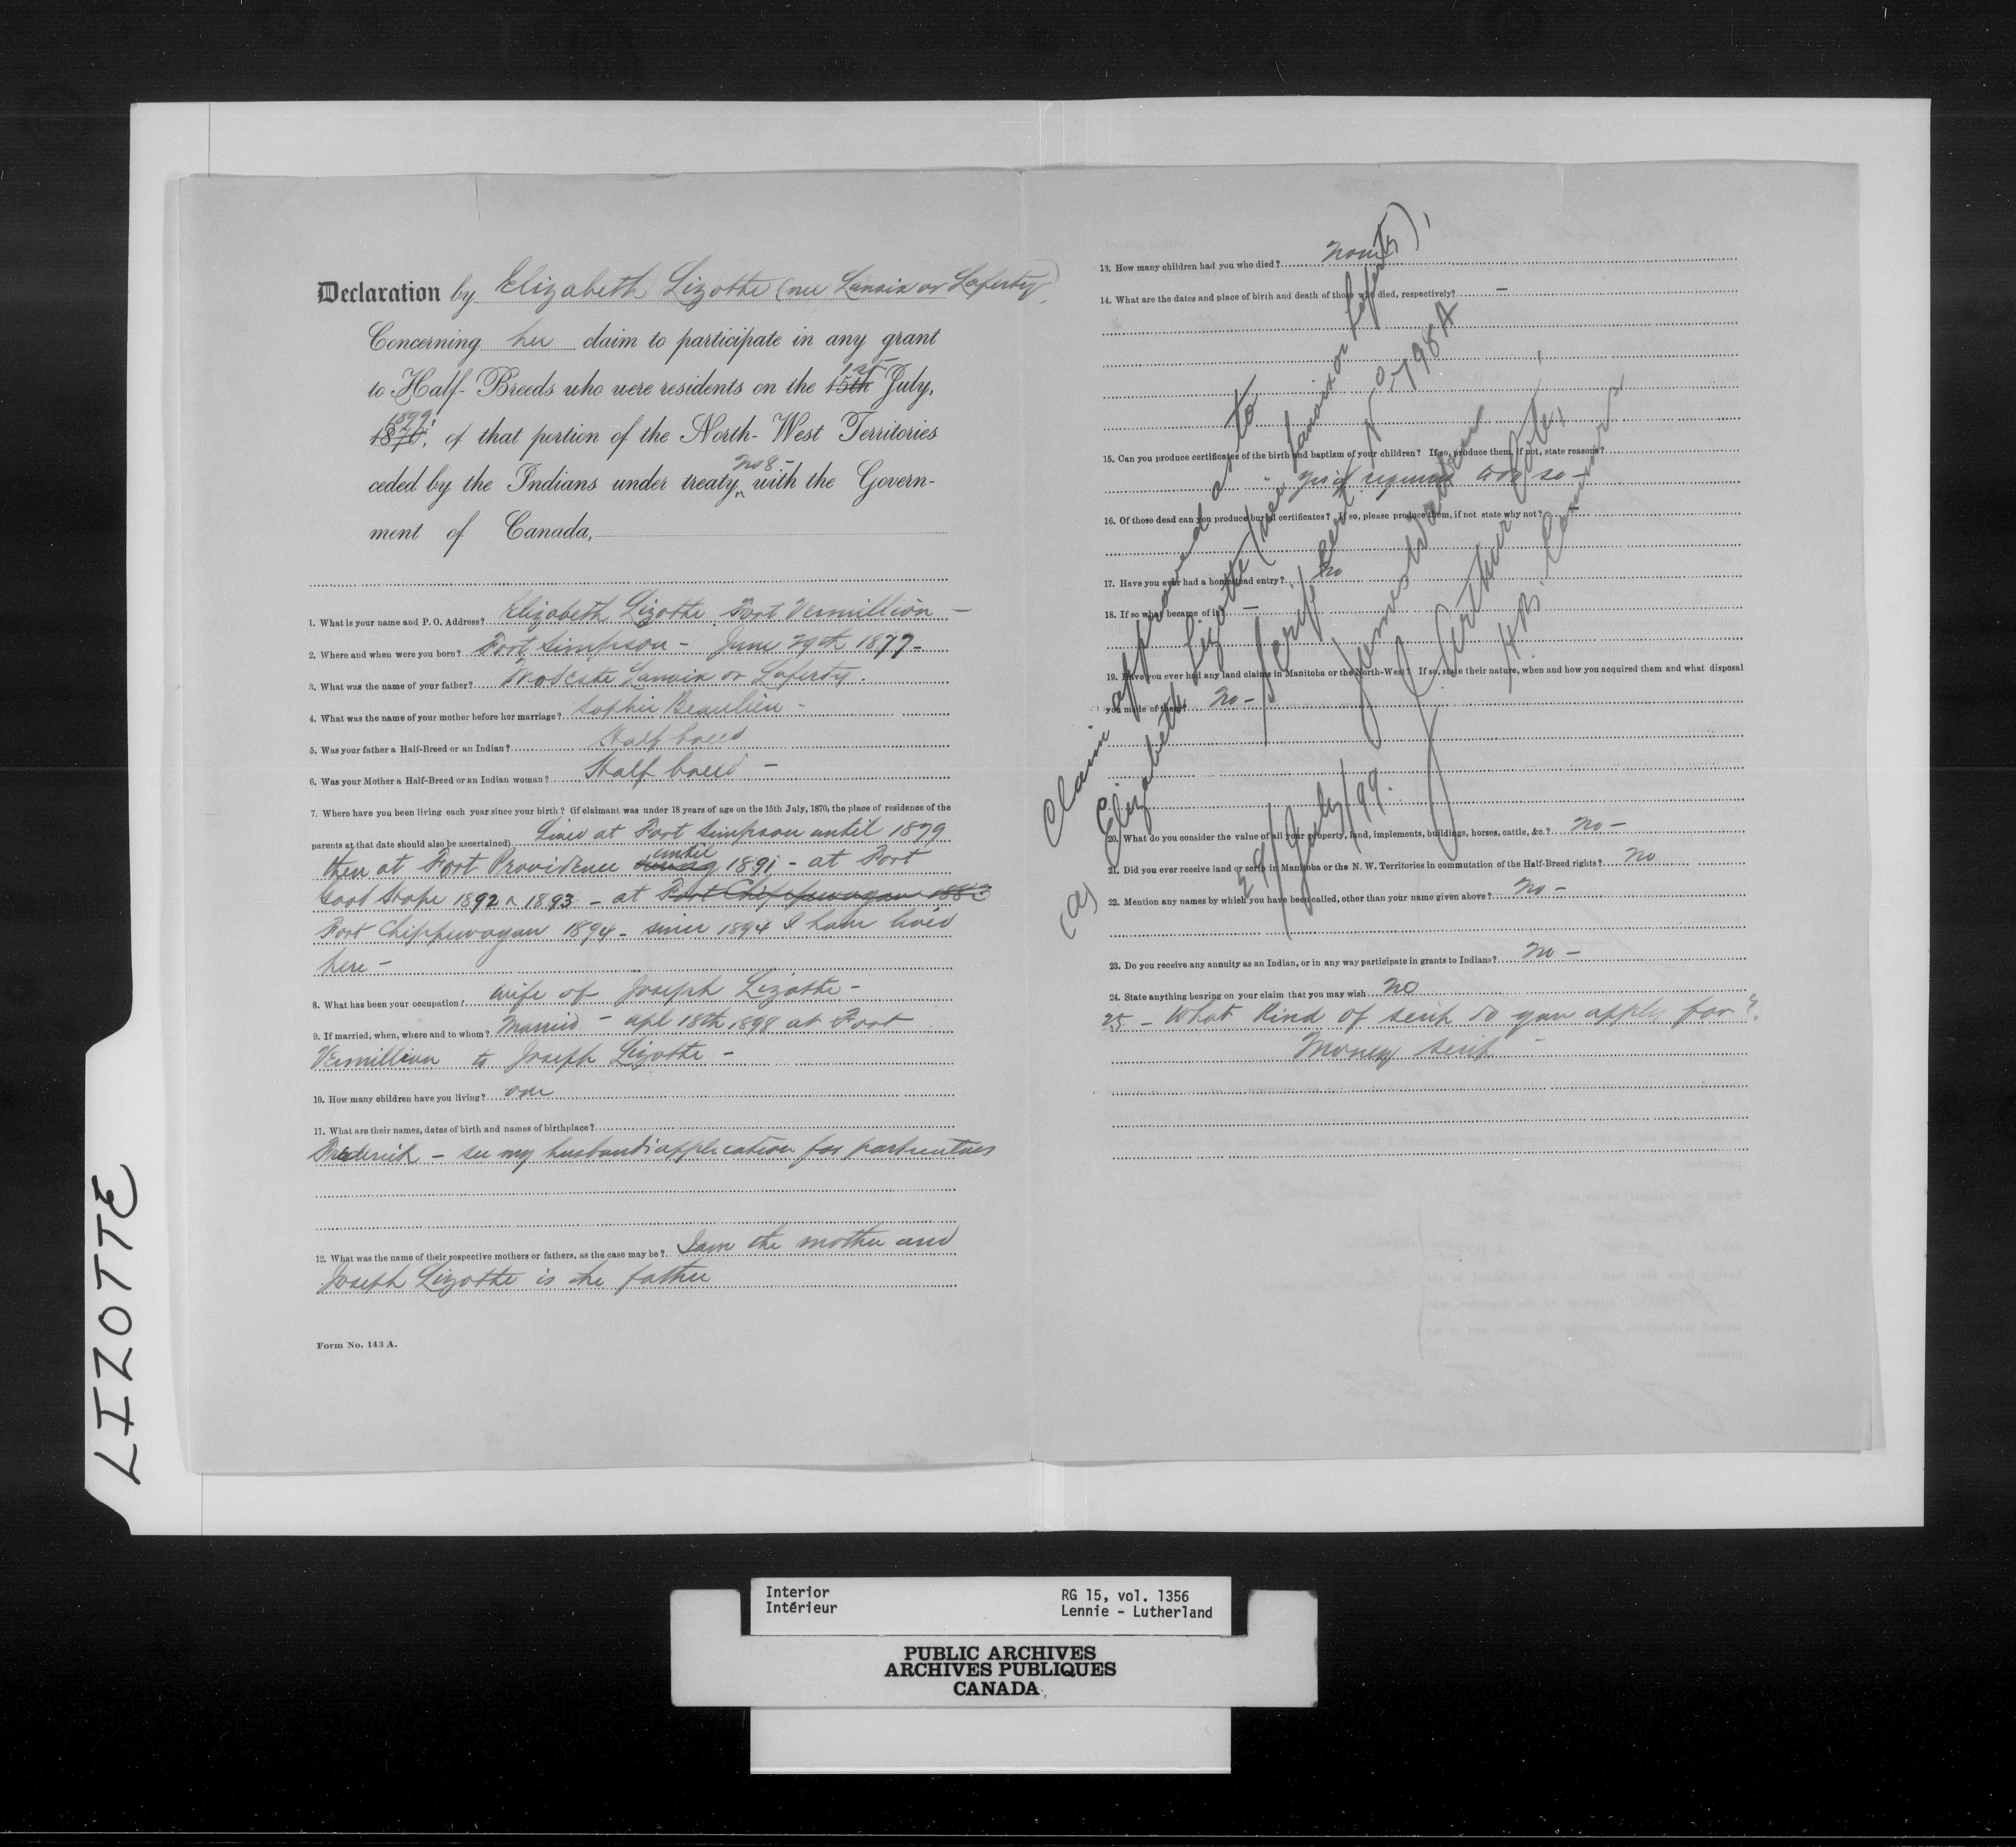 Declaration by Elizabeth Lizotte (nee Lanoix or Laferty)
Concerning her claim to participate in any grant
to Half-Breeds who were residents on the 15th 1st July,
1870, 1899, of that portion of the North-West Territories
ceded by the Indians under treaty No 8 - with the Govern-
ment of Canada,
1. What is your name and P. O. Address? Elizabeth Lizotte Fort Vermillion -
2. Where and when were you born? Fort Simpson - June 29th 1877 -
3. What was the name of your father? Modeste Lanoix or Laferty.
4. What was the name of your mother before her marriage? Sophie Beaulieu -
5. Was your father a Half-Breed or an Indian? Half breed
6. Was your Mother a Half-Breed or an Indian woman? Half breed -
7. Where have you been living each year since your birth? (if claimant was under 18 years of age on the 15th July, 1870, the place of residence of the
parents at that date should also be ascertained) Lived at Fort Simpson until 1879
then at Fort Providence until 1891 - at Fort
Good Hope 1892 & 1893 - at Fort Chippewayan 1883
Fort Chippewayan 1894 - since 1894 I have lived
here -
8. What has been your occupation? Wife of Joseph Lizotte -
9. If married, when, where and to whom? Married - Apl 18th 1898 at Fort
Vermillion to Joseph Lizotte -
10. How many children have you living? one
11. What are their names, dates of birth and names of birthplace?
Frederick - see my husband's application for particulars
12. What was the name of their respective mothers or fathers, as the case may be? I am the mother and
Joseph Lizotte is the father
Form No. 143 A.
13. How many children had you who died? None
14. What are the dates and place of birth and death of those who died, respectively? -
15. Can you produce certificates of the birth and baptism of your children? If so, produce them, if not, state reasons?
- yes if required to do so -
16. Of those dead can you produce burial certificates? If so, please produce them, if not state why not?
17. Have you ever had a homestead entry? No
18. If so what became of it? -
19. Have you ever had any land claims in Manitoba or the North-West? If so, state their nature, when and how you acquired them and what disposal
you made of them? No -
20. What do you consider the value of all your property, land, implements, buildings, horses, cattle, &c.? No -
21. Did you ever receive land or scrip in Manitoba or the N. W. Territories in commutation of the Half-Breed rights? No
22. Mention any names by which you have been called, other than your name given above? No -
23. Do you receive any annuity as an Indian, or in any way participate in grants to Indians? No -
24. State anything bearing on your claim that you may wish No
25 - What kind of scrip do you apply for?
Money scrip -
(a) Claim approved as to
Elizabeth Lizotte (nee Lanoix or Laferty)
Scrip Cert No 798 A
James Walker
J. Arthur Coté,
H.B. Commrs
29/July/99.
LIZOTTE
Interior
Intérieur
RG 15, vol. 1356
Lennie - Lutherland
PUBLIC ARCHIVES
ARCHIVES PUBLIQUES
CANADA